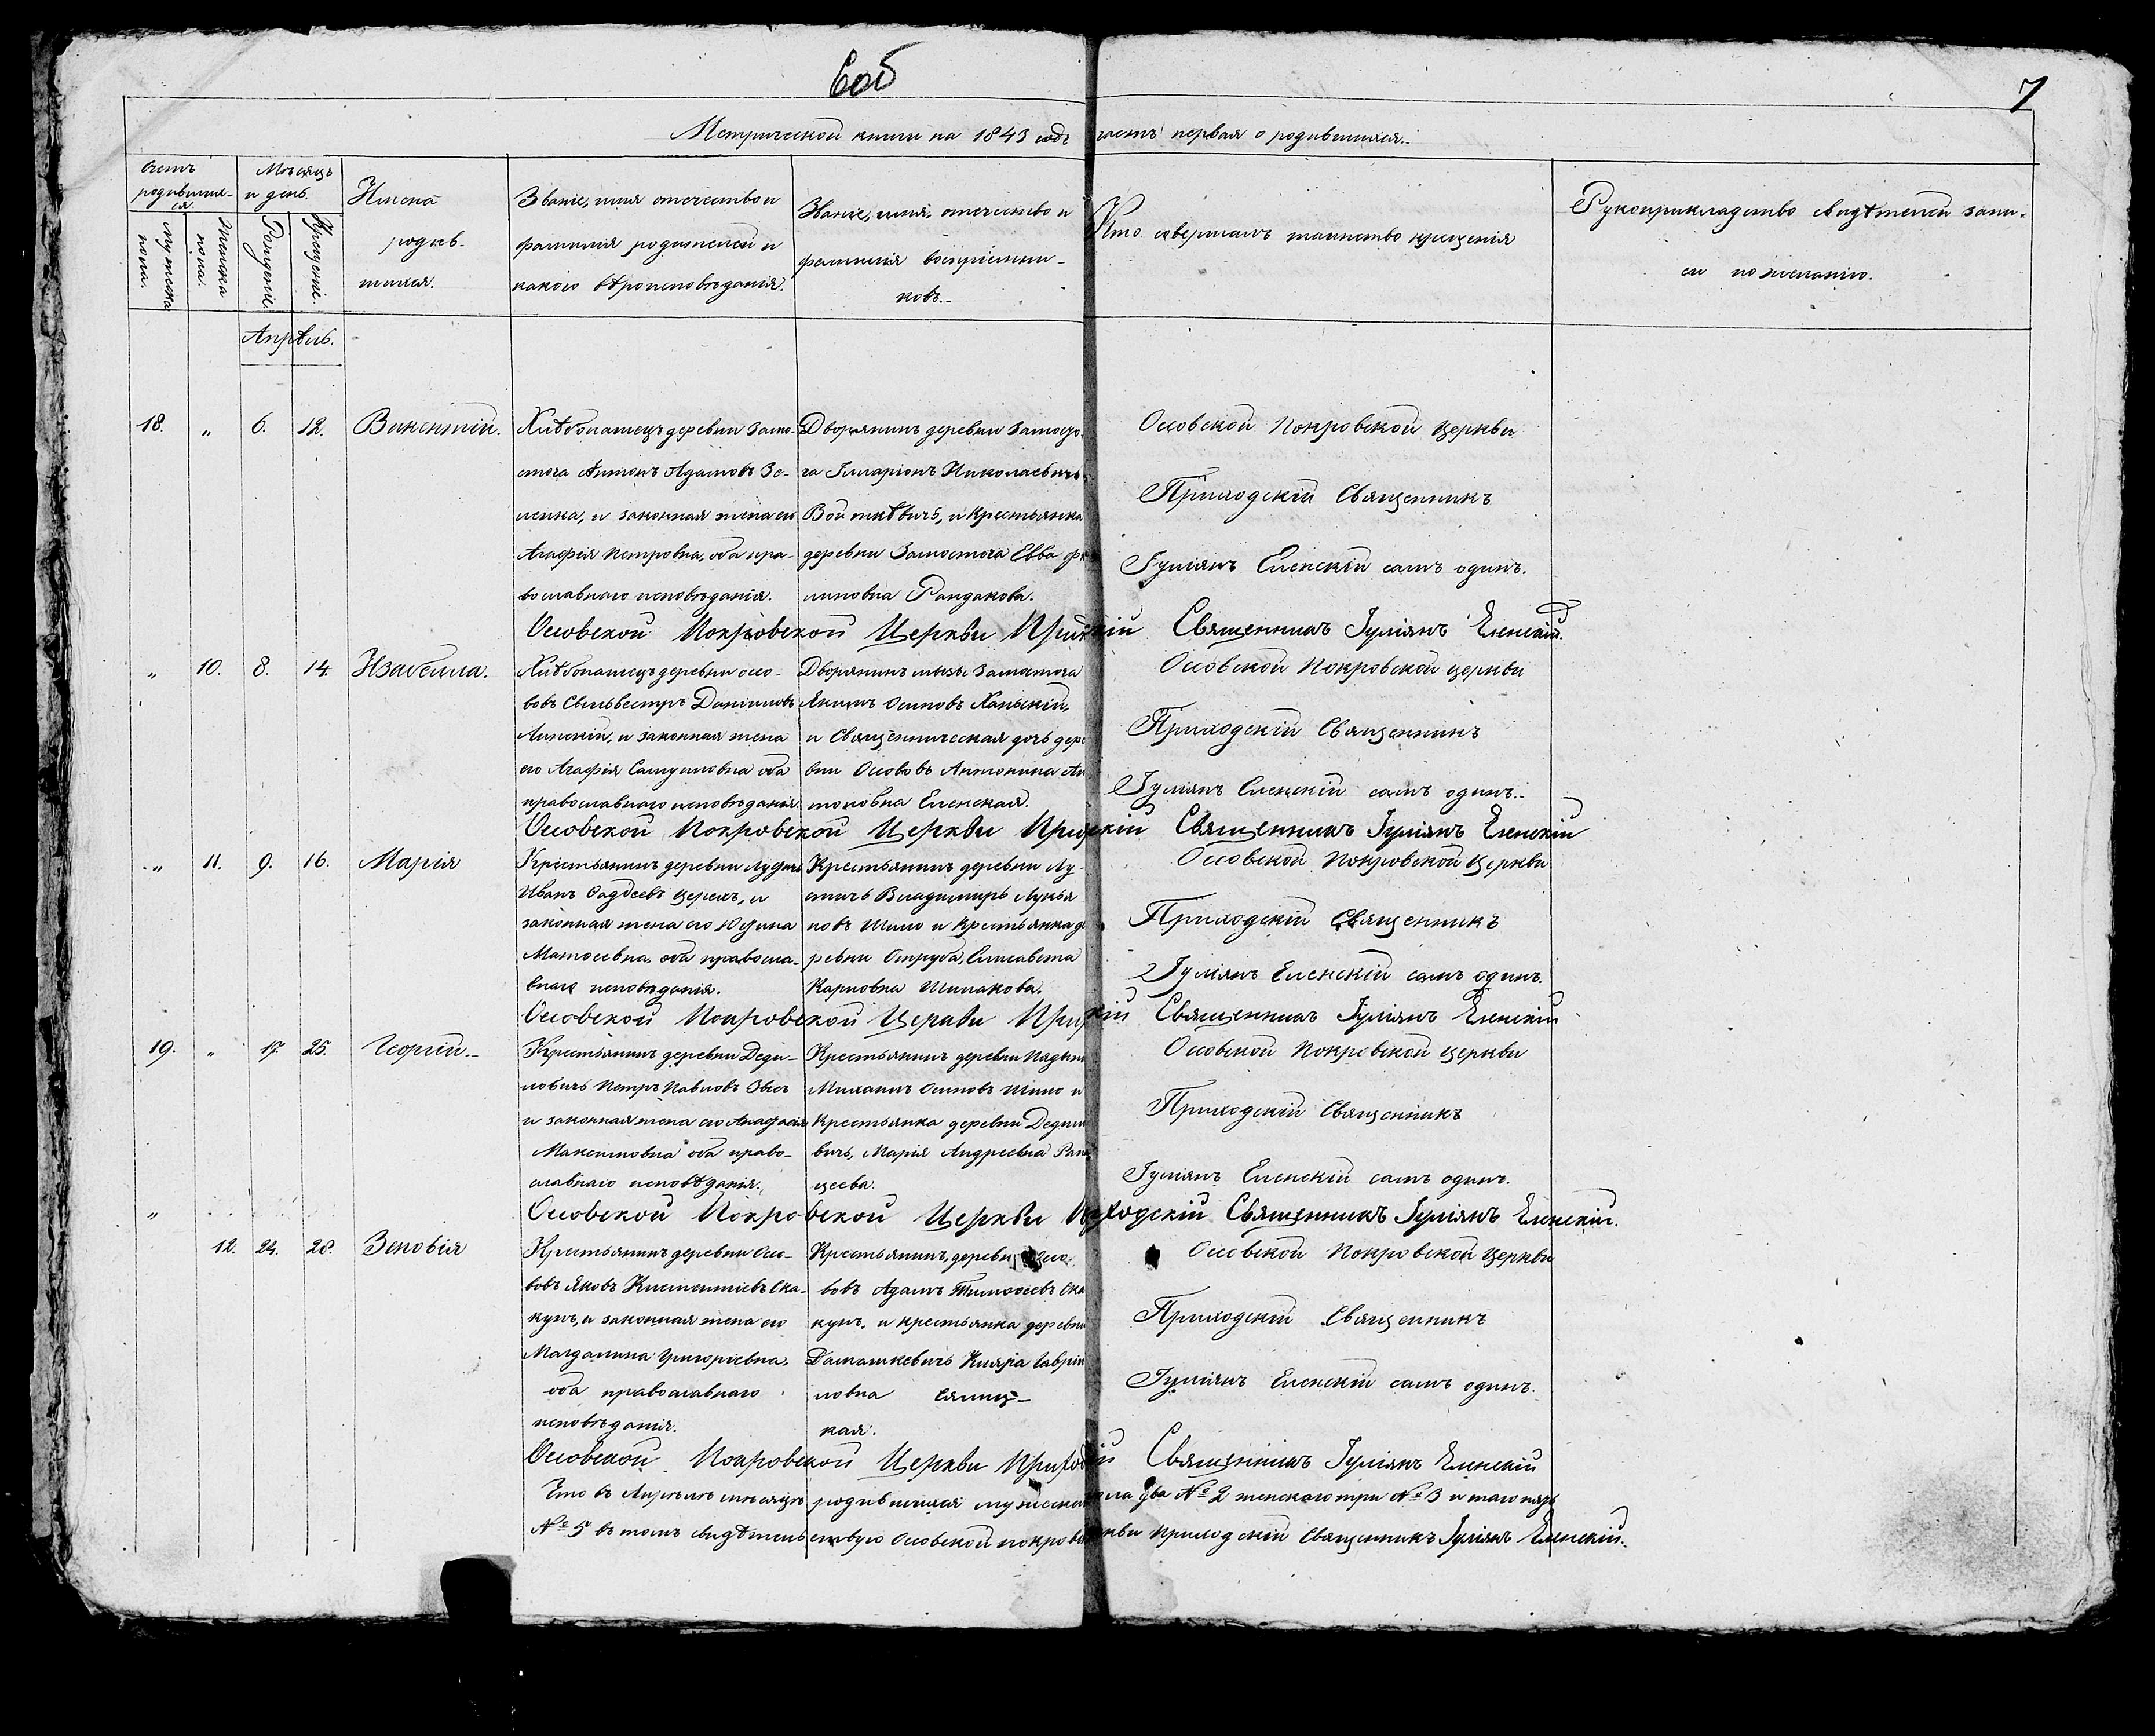 6об
7
Метрической книги на 1843 годъ часть первая о родившихся..
Счетъ родившихся.
Мѣсяцъ и день.
Имена родившихся.
Званіе, имя отечество и фамилія родителей и какого вѣроисповѣданія.
Званіе, имя, отечество и фамилія воспріемниковъ.
Кто совершалъ таинство крещенія
Рукоприкладство свидѣтелей записи по желанію.
Мужеска пола.
Женска пола.
Рожденіе.
Крещеніе.
Апрѣль.
18. „ 6. 12. Викентій.
Хлѣбопашецъ деревни Замо-
сточа Антонъ Адамовъ Зе-
ленка, и законная жена его
Агафія Петровна, оба пра-
вославнаго исповѣданія.
Дворянинъ деревни
ча Илларіонъ Николаевичъ
Войткѣвичъ, и крестьянка
деревни Замосточа Евва
Рандакова.
Осовской Покровской церкви
Приходскій Священникъ
Іуліянъ Еленскій самъ одинъ.
Осовской Покровской Церкви Священникъ Іуліянъ Еленскій.
„ 10. 8. 14. Изабелла.
Хлѣбопашецъ деревни осо-
вовъ Сильвестръ Даніиловъ
и законная жена
его Агафія Самуиловна оба
православнаго исповѣданія
Дворянинъ Замосточа
Якимъ Осиповъ
и Священническая дочь дере
вни Осововъ Антонина Ан
тоновна Еленская.
Осовской Покровской церкви
Приходскій Священникъ
Іуліянъ Еленскій самъ одинъ..
Осовской Покровской Церкви Священникъ Іуліянъ Еленскій
„ 11. 9. 16. Марія
Крестьянинъ деревни
Иванъ Фаддеевъ Церехъ, и
законная жена его Юстина
Матвеевна, оба правосла-
внаго исповѣданія.
Крестьянинъ деревни Лу-
Владимиръ Лукья
новъ Шило и крестьянка де
ревни Отруба, Елисавета
Карповна Шилакова.
Осовской Покровской церкви
Приходскій Священникъ
Іуліянъ Еленскій самъ одинъ.
Осовской Покровской Церкви Священникъ Іуліянъ Еленскій
19. „ 17. 25. Георгій.-
Крестьянинъ деревни Деди-
ловичъ Петръ Павловъ
и законная жена его
Максимовна оба право-
славнаго исповѣданія.
Крестьянинъ деревни
Михаилъ Осиповъ Шило и
Крестьянка деревни Дедил
вичъ, Марія Андреевна
цеева.
Осовской Покровской церкви
Приходскій Священникъ
Іуліянъ Еленскій самъ одинъ.
Осовской Покровской Церкви Священникъ Іуліянъ Еленскій.
„ 12. 24. 28. Зеновія
Крестьянинъ деревни Осо-
вовъ Яковъ Ска-
кунъ, и законная жена его
Магдалина Григорьевна,
оба православнаго
исповѣданія.
Крестьянинъ деревни Осо
вовъ Адамъ Тимофеевъ Ска
кунъ, и крестьянка деревни
Дамашкевичъ Гаврiи
ловна
кая.
Осовской Покровской церкви
Приходскій Священникъ
Іуліянъ Еленскій самъ одинъ.
Осовской Покровской Церкви Священникъ Іуліянъ Еленскій
Что въ Апрѣлѣ мѣсяцѣ родившихся мужеска пола два № 2 женскаго три № 3 и того пять
№ 5 въ томъ свидѣтельствую Осовской Приходскій Священникъ Іуліянъ Еленскій.